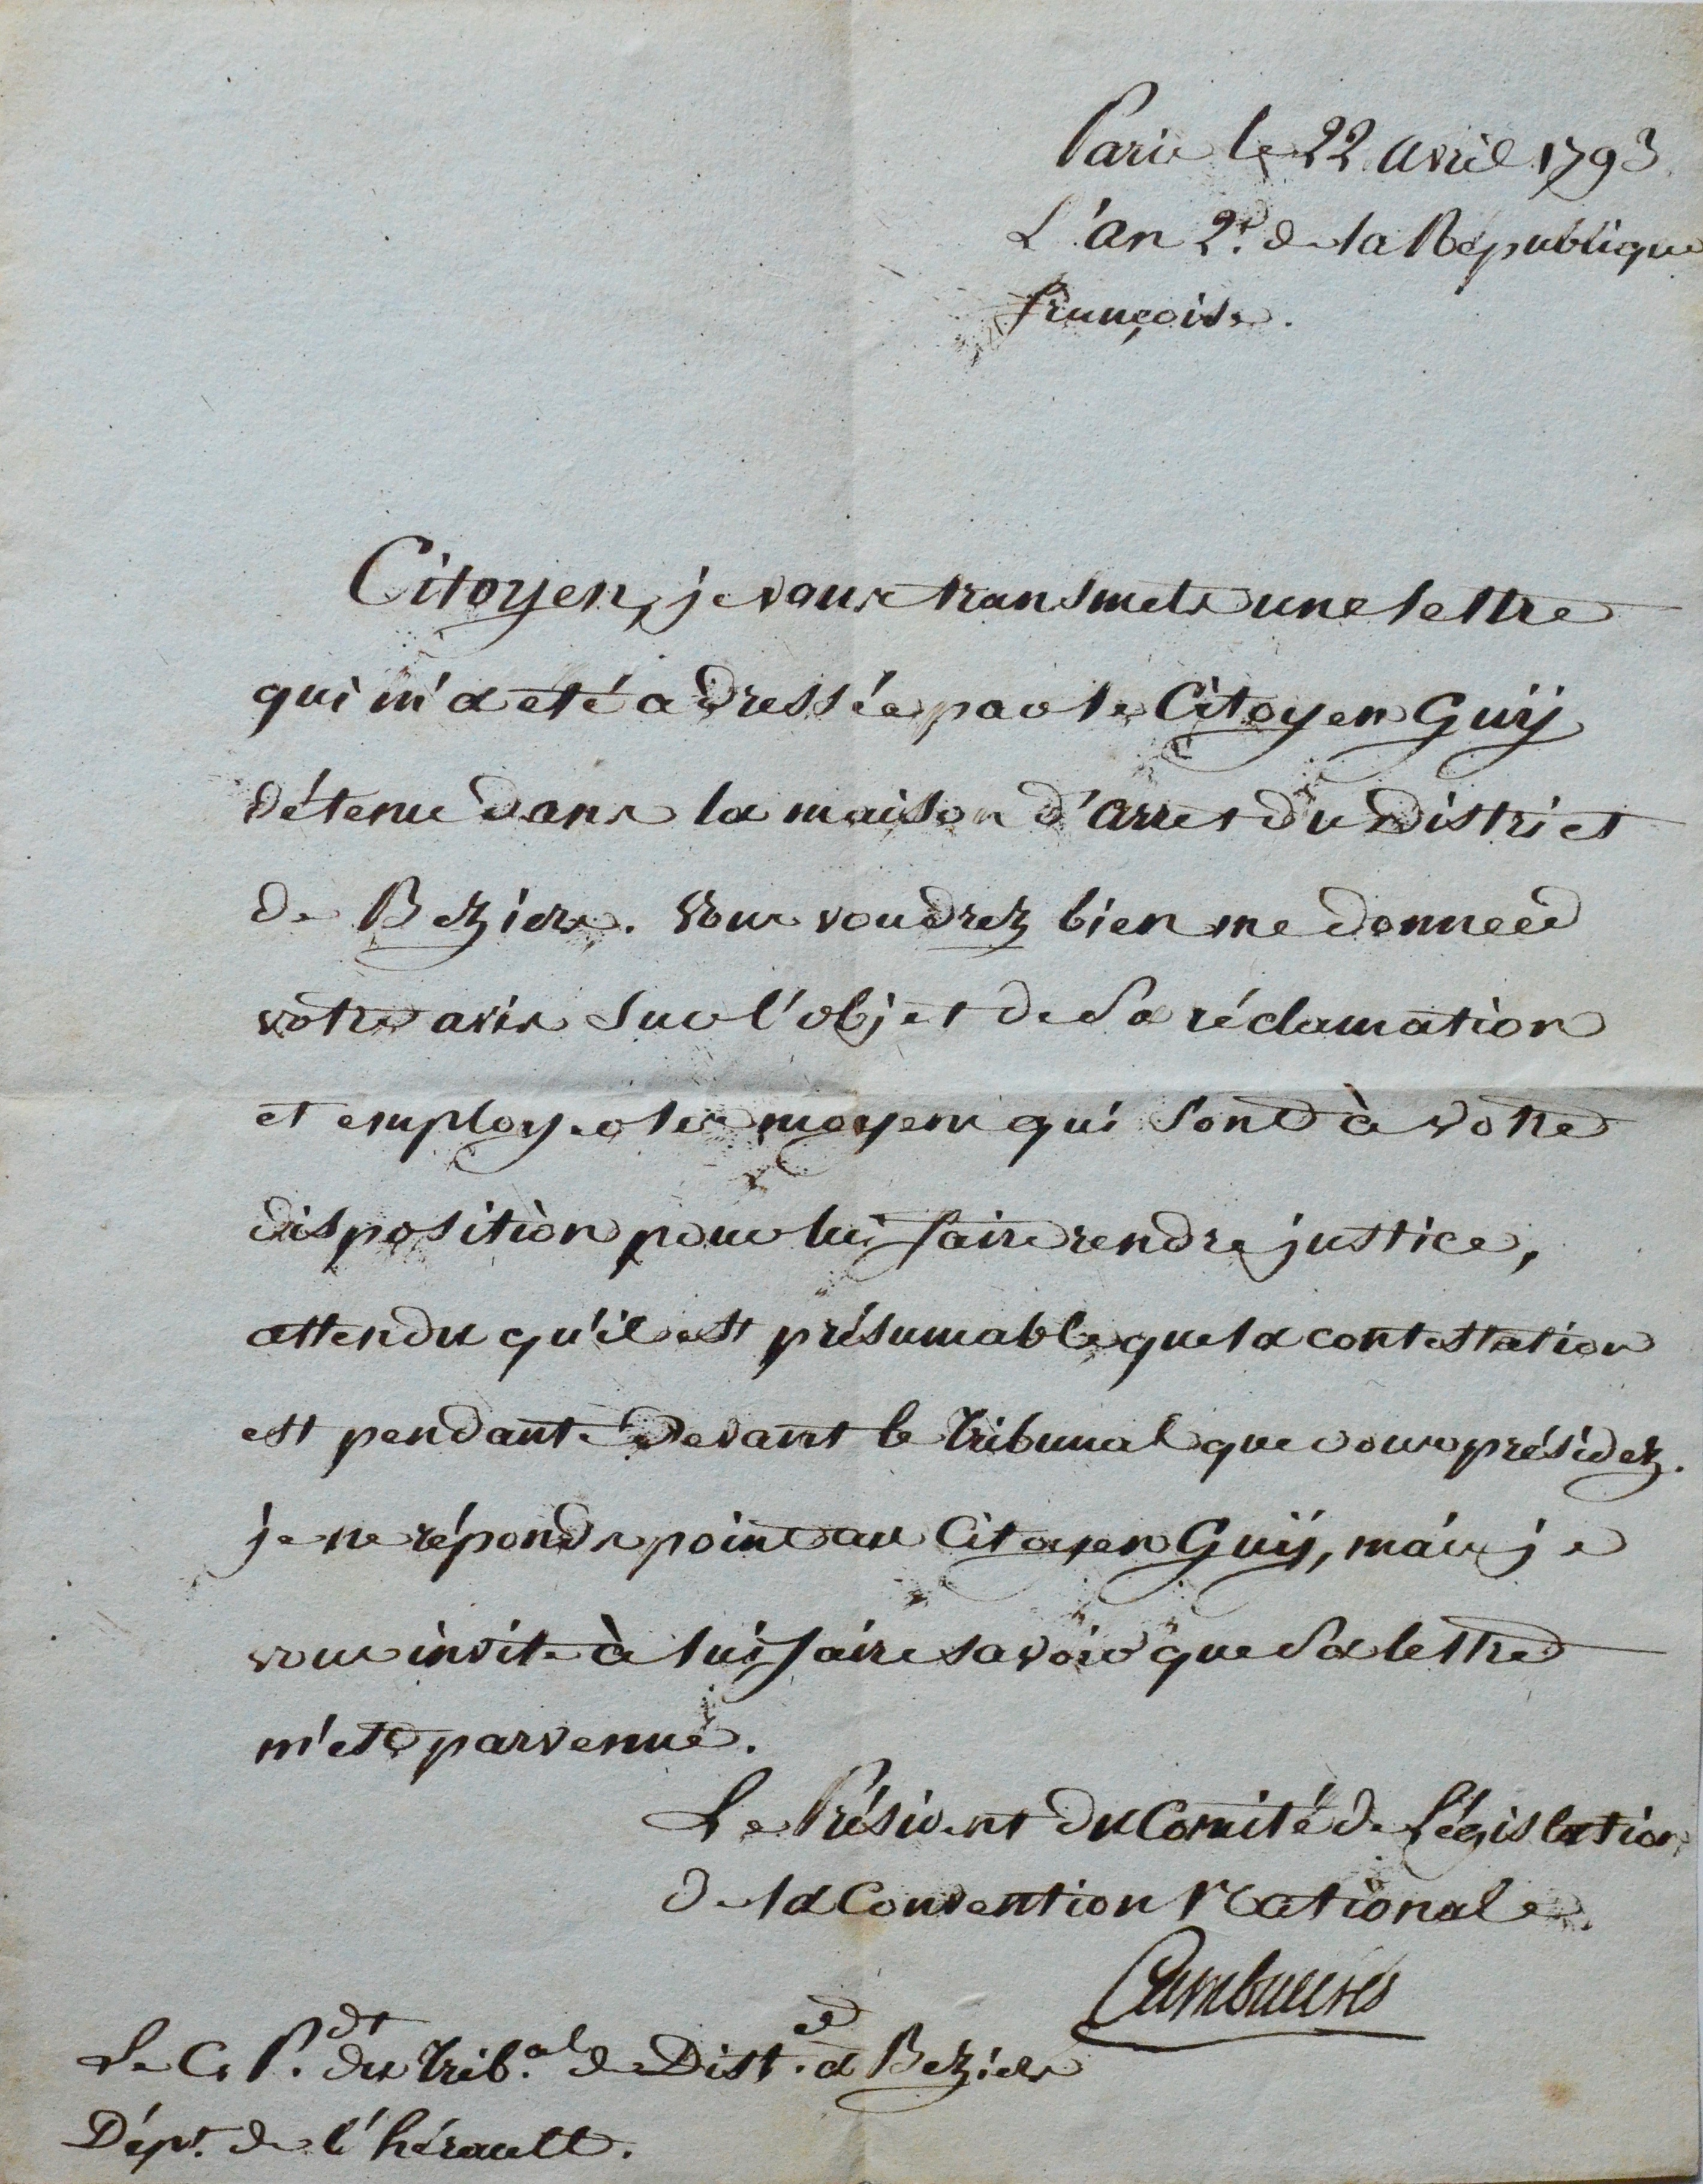 Paris le 22 avril 1793
L'an 2.d de la République
françoise.
Citoyen, je vous transmets une lettre
qui m'a eté adressée par le Citoyen Guÿ
détenu dans la maison d'arret du District
de Beziers. vous voudrez bien me donner
votre avis sur l'objet de Sa réclamation
et employer les moyens qui Sont à votre
disposition pour lui faire rendre justice,
attendu qu'il est présumable que la contestation
est pendante devant le tribunal que vous présidez.
je ne réponds point au Citoyen Guÿ, mais je
vous invite à lui faire savoir que Sa lettre
m'est parvenue.
Le Président du Comité de Législation
de la Convention Nationale
Cambacérès
Le C. P.dt du Trib.al de Dist. à Beziers
Dépt. de l'hérault.